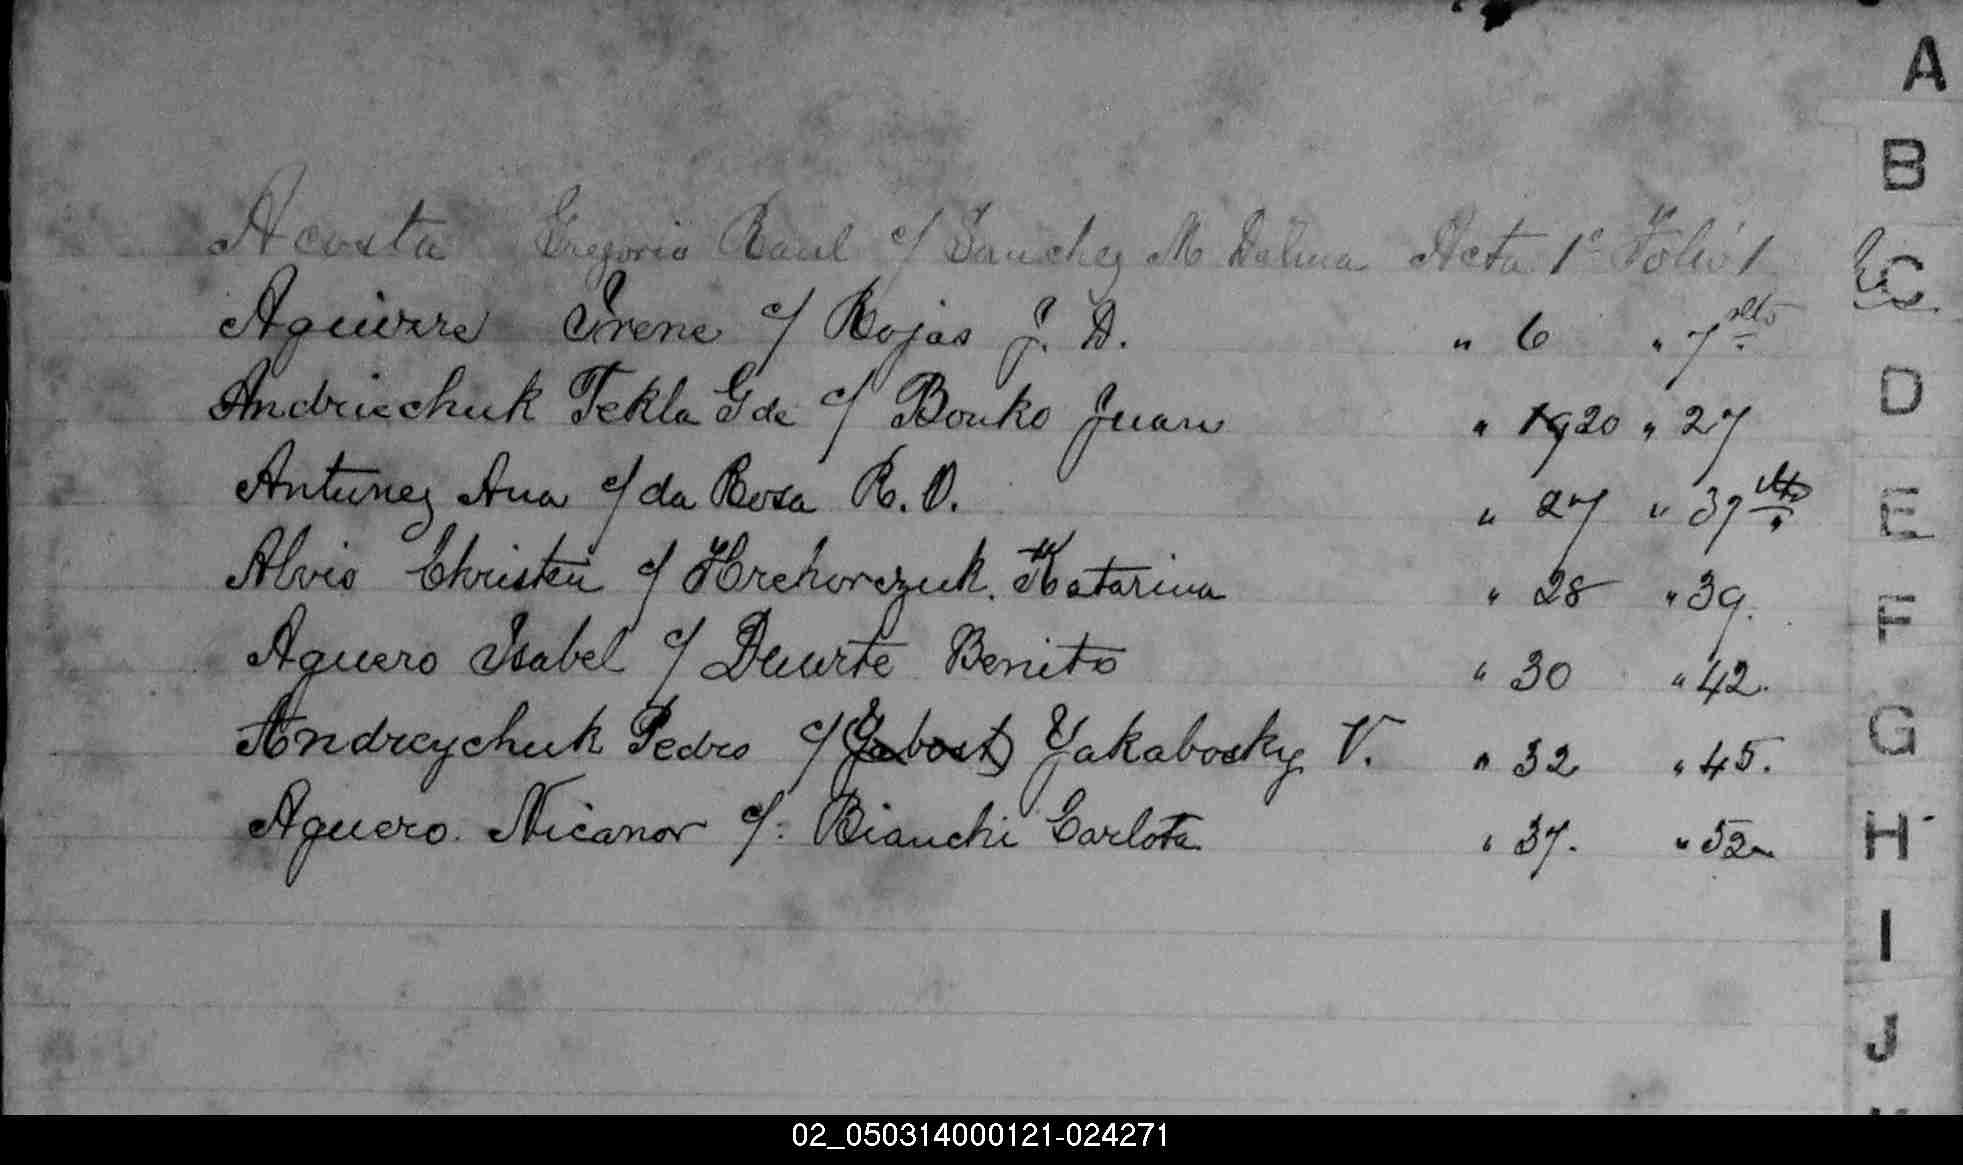 Acosta Gregorio Raul c/ Sanchez M Dalma Acta 1º Folio 1
Aguirre Irene c/ Rojas J. D. " 6 " 7 vlto
Andriechuk Tekla G de c/ Bouko Juan " 1920 " 27
Antunez Ana c/ da Rosa R. O. " 27 " 37 vto
Alvio Christen c/ Hrehorczuk. Katarina " 28 " 39.
Aguero Isabel c/ Duarte Benito " 30 " 42.
Andreychuk Pedro c/ Yakabosky V. " 32 " 45.
Aguero. Nicanor c/: Bianchi Carlota " 37. " 52
A
B
C
D
E
F
G
H
I
J
02_050314000121-024271